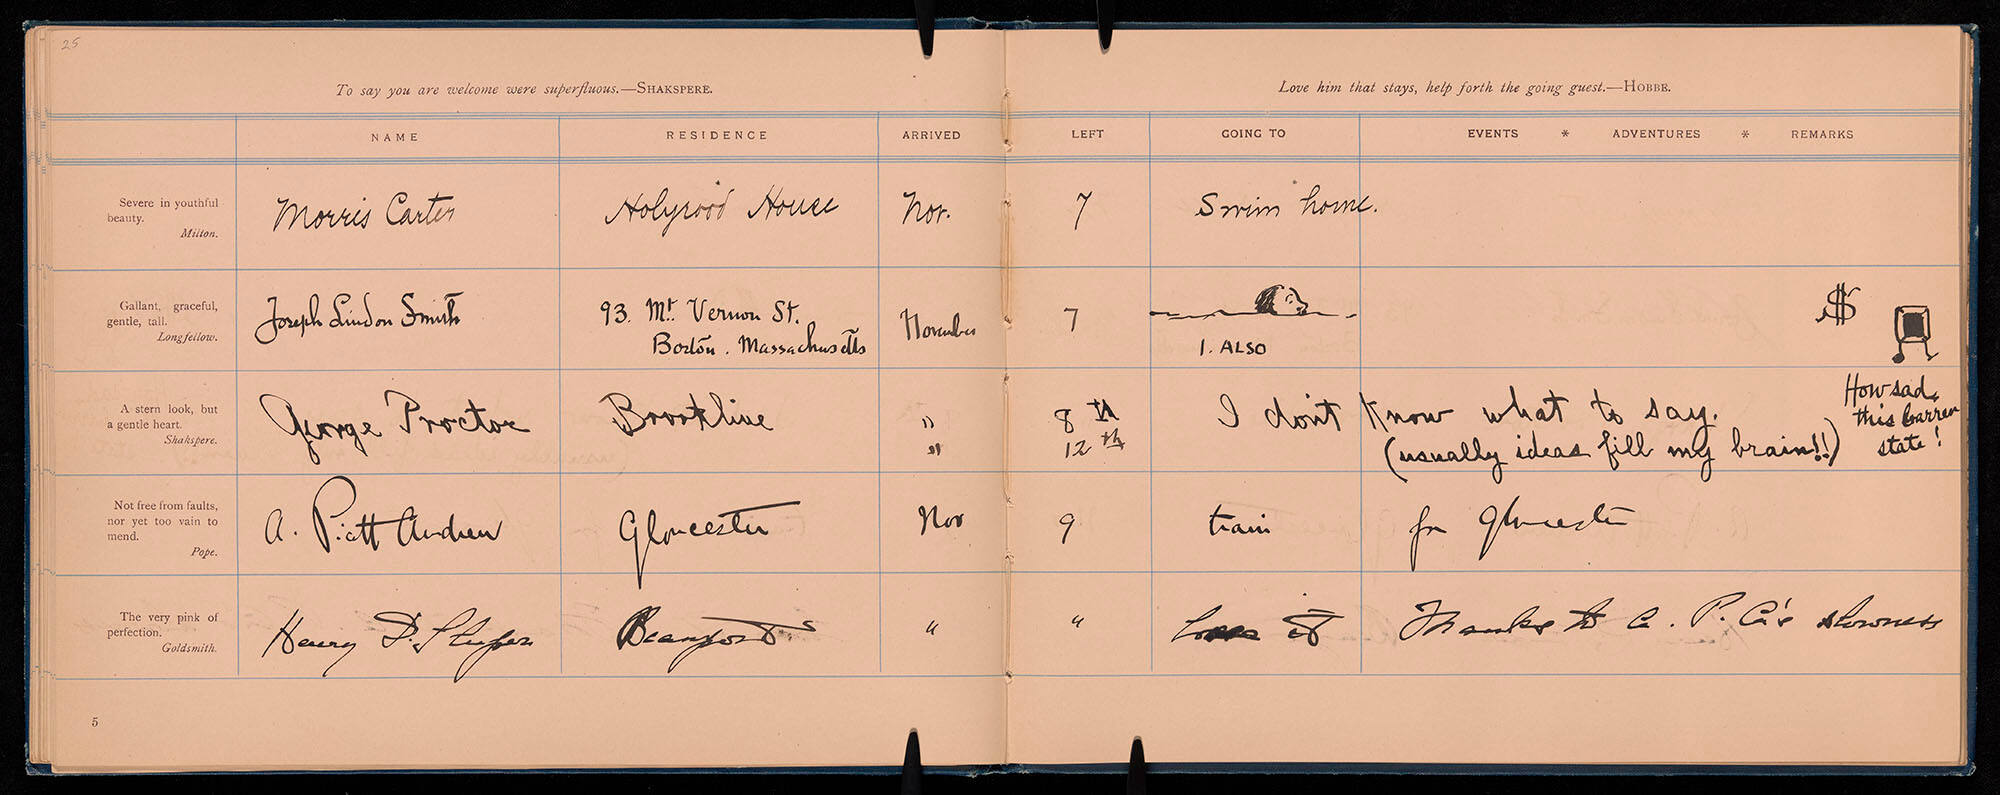 25
To say you are welcome were superfluous.—SHAKSPERE.
Love him that stays, help forth the going guest.—HOBBE.
NAME RESIDENCE ARRIVED LEFT GOING TO EVENTS * ADVENTURES * REMARKS
Severe in youthful
beauty.
Milton.
Morris Carter Holyrood House Nov. 7 Swim home.
Gallant, graceful,
gentle, tall.
Longfellow.
Joseph Lindon Smith 93. Mt. Vernon St.
Boston. Massachusetts
November 7
I. ALSO
$
A stern look, but
a gentle heart.
Shakspere.
George Proctor Brookline " 8th I don't know what to say.
" 12th (usually ideas fill my brain!!)
How sad,
this barren
state!
Not free from faults,
nor yet too vain to
mend.
Pope.
A. Piatt Andrew Gloucester Nov 9 train for Gloucester
The very pink of
perfection.
Goldsmith.
Henry D. Sleeper " " it Thanks to A. P. A's slowness
5